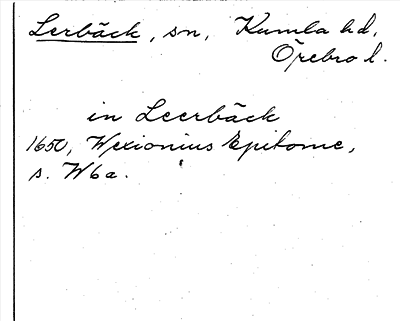 Lerbäck, sn, Kumla hd,
Örebro l.
in Leerbäck
1650, Wexionius Epitome,
s. W6a.